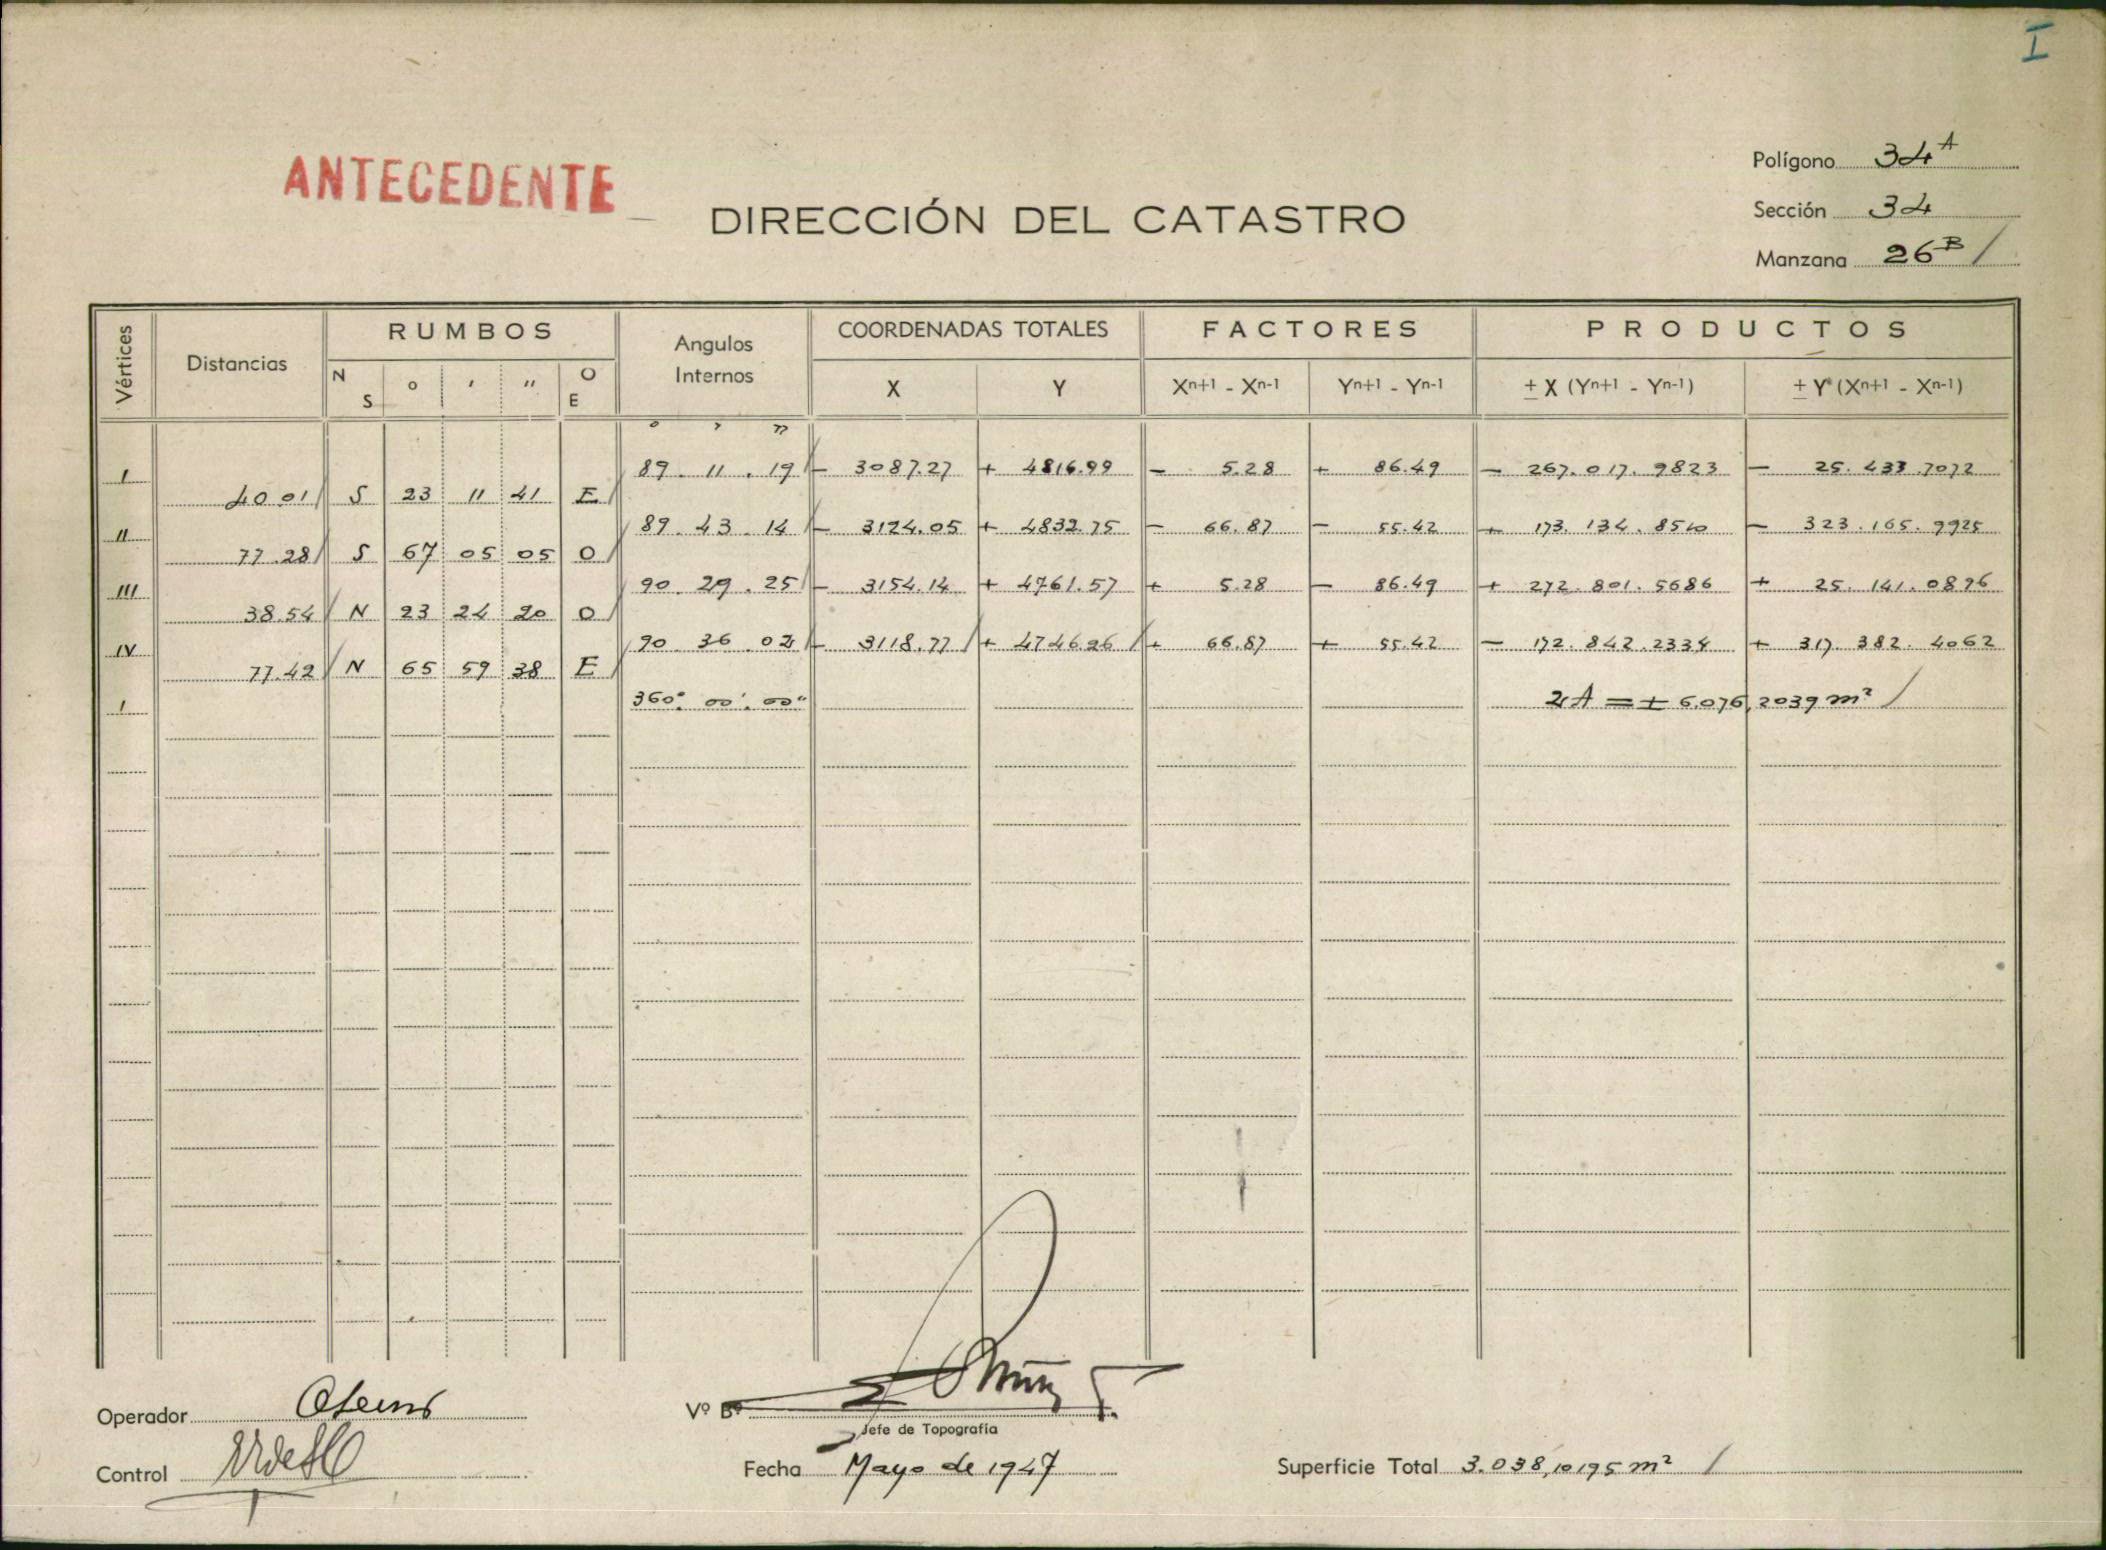 I
ANTECEDENTE
DIRECCIÓN DEL CATASTRO
Polígono 34 A
Sección 34
Manzana 26 B /
Vértices Distancias RUMBOS Angulos Internos COORDENADAS TOTALES FACTORES PRODUCTOS
N S o ' " O E X Y Xn+1 - Xn-1 Yn+1 - Yn-1 ± X (Yn+1 - Yn-1) ± Y (Xn+1 - Xn-1)
o ' "
I 89 . 11 . 19 - 3087.27 + 4816.99 - 5.28 + 86.49 - 267.017.9823 - 25.433.7072
40.01 S 23 11 41 E
II 89 . 43 . 14 - 3124.05 + 4832.75 - 66.87 - 55.42 + 173.134.8510 - 323.165.9925
77.28 S 67 05 05 O
III 90 . 29 . 25 - 3154.14 + 4761.57 + 5.28 - 86.49 + 272.801.5686 + 25.141.0896
38.54 N 23 24 20 O
IV 90 36 02 - 3118.77 + 4746.26 + 66.87 + 55.42 - 172.842.2334 + 317.382.4062
77.42 N 65 59 38 E
I 360° 00' 00" 2A = ± 6.076,2039 m² /
Operador
Vº Bº
Jefe de Topografía
Control
Fecha Mayo de 1947
Superficie Total 3.038,10195 m² /